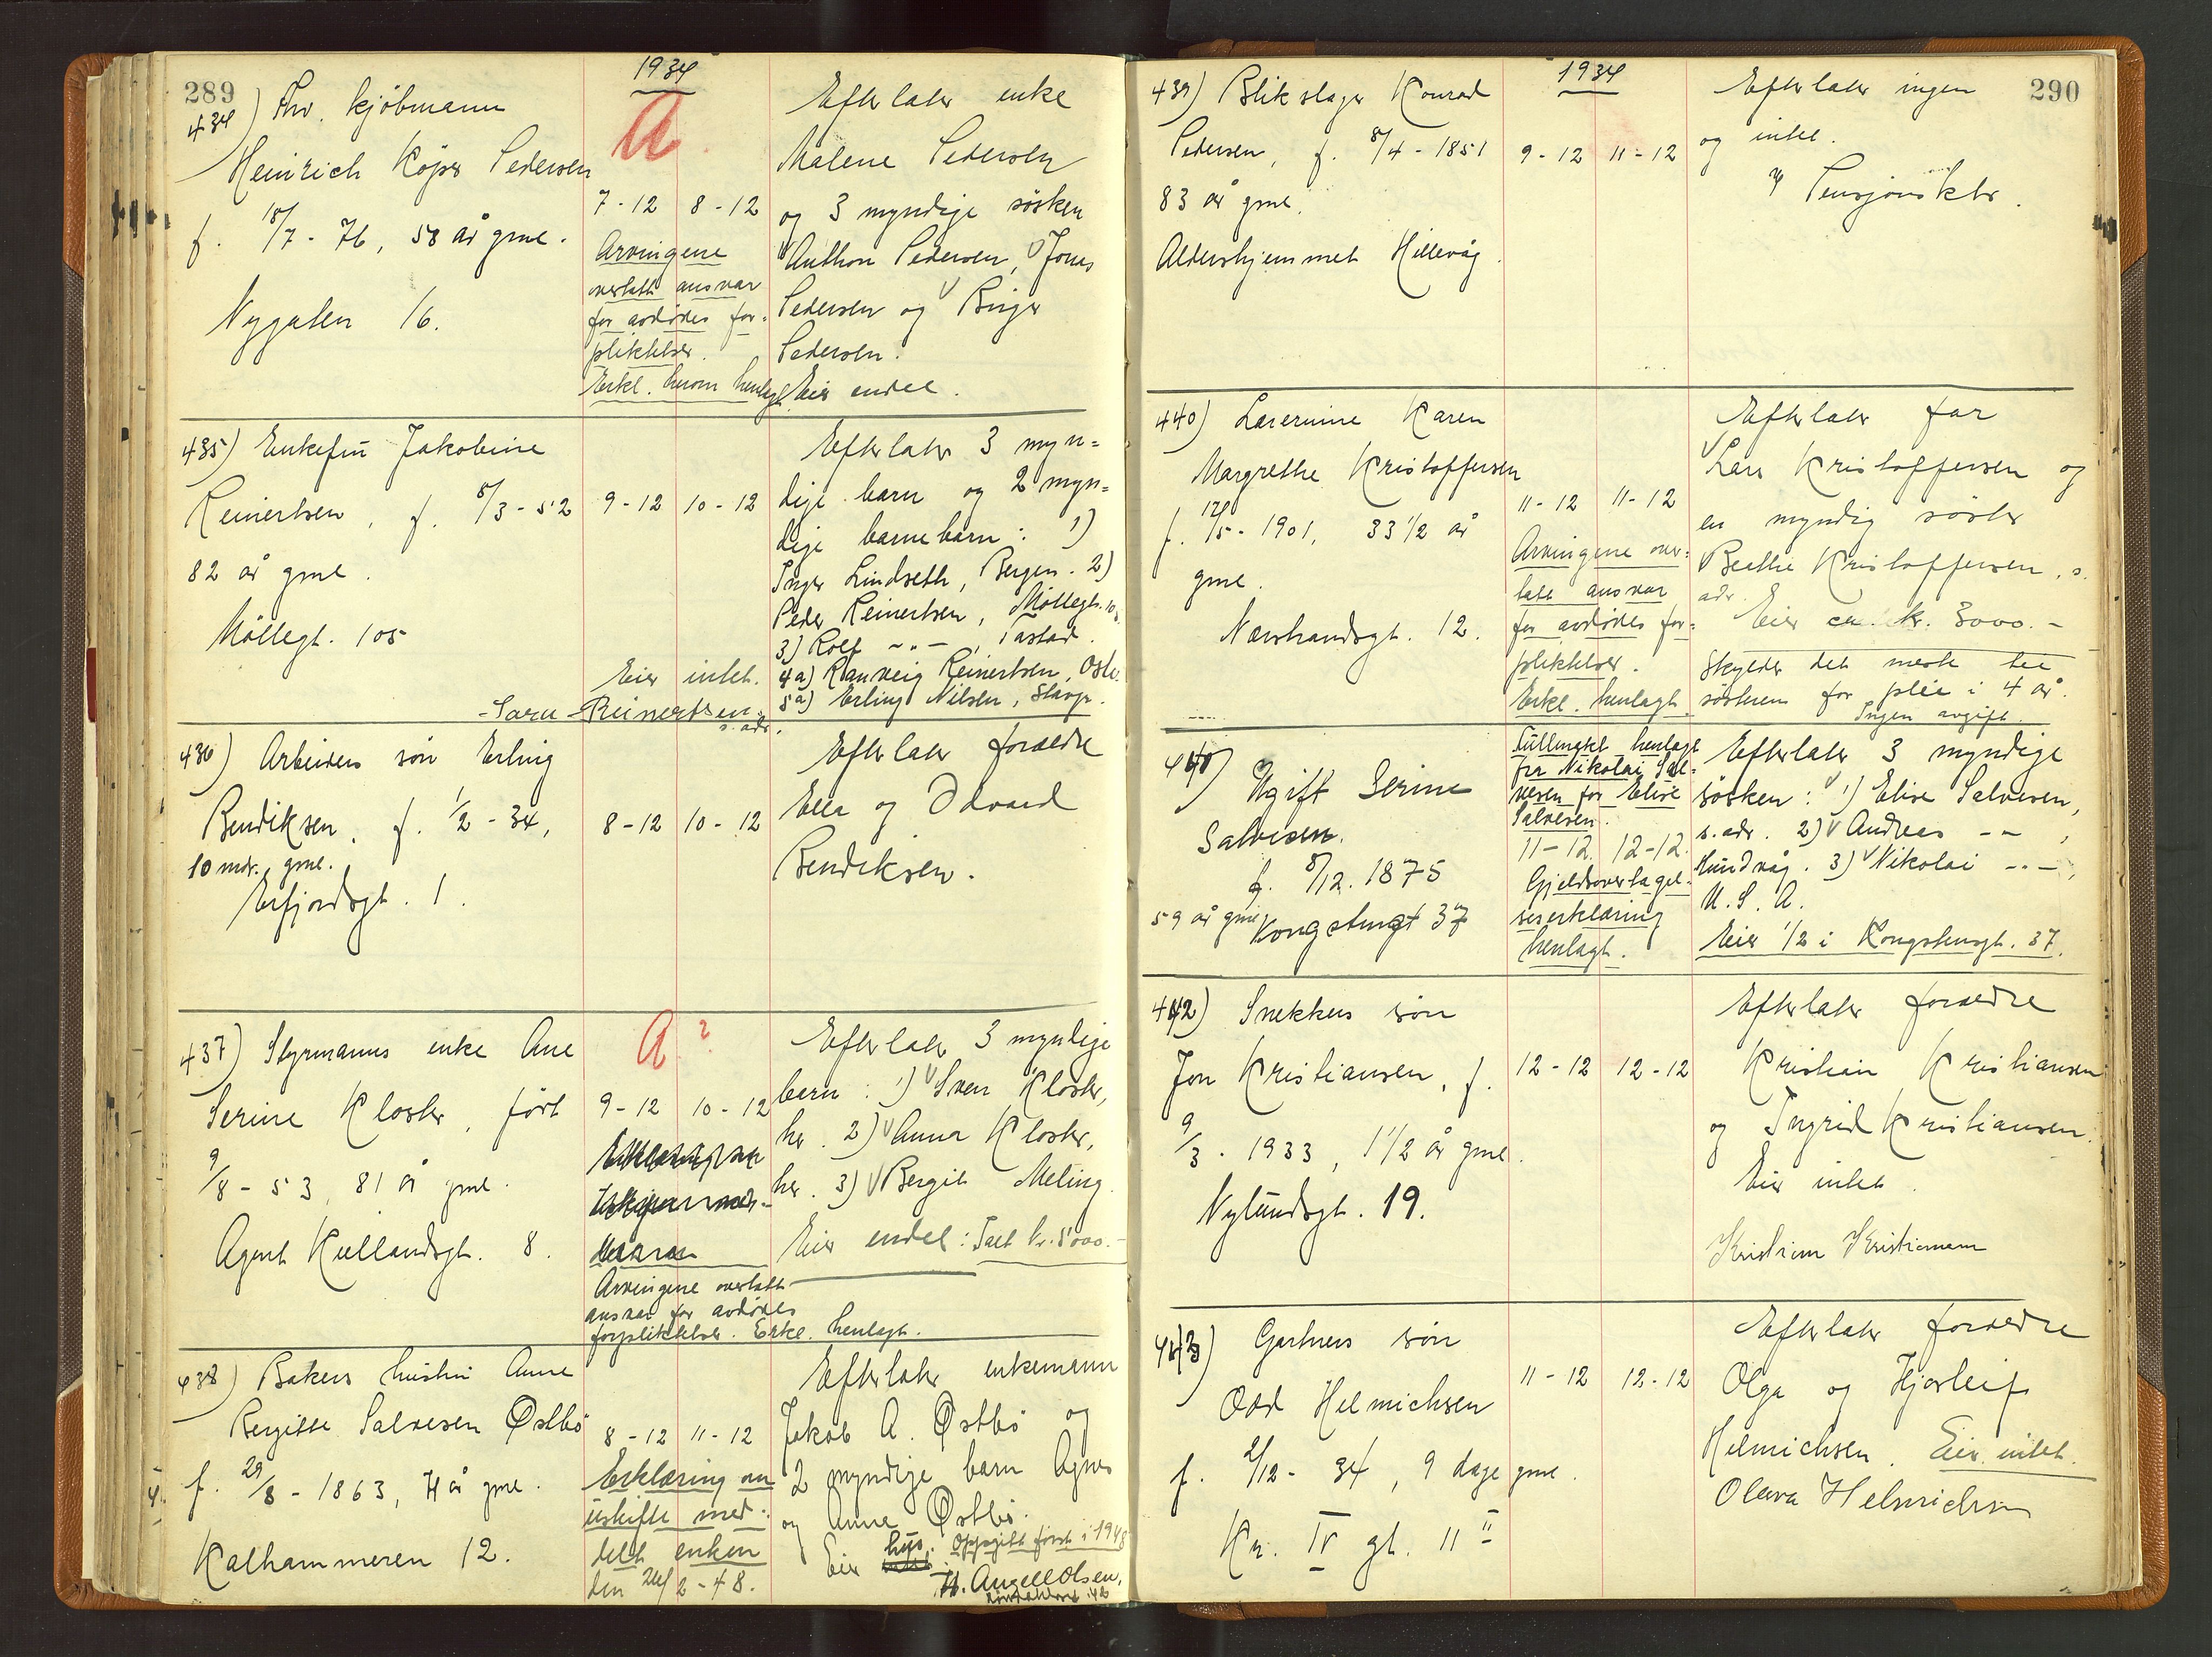 289
1934
434) Fhv. kjöbmann
Heinrich Köpss Pedersen
f. 18/7 - 76, 58 år gml.
Nygaten 16.
A
7-12 8-12
Arvingene
overtatt ansvar
for avdödes for-
pliktelser.
Erkl. herom henlagt
Efterlater enke
Malene Pedersen
og 3 myndige sösken
Anthon Pedersen, Jonas
Pedersen og Birger
Pedersen.
Eier endel.
435) Enkefru Jakobine
Reinertsen, f. 8/3 - 52
82 år gml.
Möllegt. 105
9-12 10-12
Eier intet.
Sara Reinertsen
s. adr.
Efterlater 3 myn-
dige barn og 2 myn-
dige barnebarn: 1)
Inger Lindseth, Bergen. 2)
Peder Reinertsen, Möllegt. 105
3) Rolf -"-, Tastad.
4a) Ranveig Reinertsen, Oslo.
5a) Erling Nilsen, Stavgr.
436) Arbeiders sön Erling
Bendiksen, f. 1/2 - 34,
10 mdr. gml.
Erfjordsgt. 1.
8-12 10-12
Efterlater foreldre
Ella og Edvard
Bendiksen.
437) Styrmanns enke Ane
Serine Kloster, född
9/8 - 53, 81 år gml.
Agent Kiellandsgt. 8.
A ?
9-12 10-12
Arvingene overtatt
ansvar for avdödes
forpliktelser. Erkl. henlagt.
Efterlater 3 myndige
barn: 1) Sven Kloster,
her. 2) Anna Kloster,
her. 3) Bergit Meling.
Eier endel: Takst kr. 5000.-
438) Bakers hustru Anne
Bergitte Salvesen Östbö
f. 29/8 - 1863, 71 år gml.
Kalhammeren 12.
8-12 11-12
Erklæring om
uskifte med-
delt enken
den 24/2 - 48.
Efterlater enkemann
Jakob A. Östbö og
2 myndige barn Agnes
og Anna Östbö.
Eier hus. Oppgitt först i 1948
H. Angell Olsen,
290
1934
439) Blikslager Konrad
Pedersen, f. 8/4 - 1851
83 år gml.
Aldershjemmet Hillevåg.
9-12 11-12
Efterlater ingen
og intet.
Pensjonsktr.
440) Lærerinne Karen
Margrethe Kristoffersen
f. 12/5 - 1901, 33 1/2 år
gml.
Nærstrandsgt. 12.
11-12 11-12
Arvingene over-
tatt ansvar
for avdödes for-
pliktelser.
Erkl. henlagt.
Efterlater far
Lars Kristoffersen og
en myndig söster
Berthe Kristoffersen, s.
adr.
Eier ca. kr. 3000.-
Skylder det meste til
sösteren for pleie i 4 år.
Ingen avgift.
441) Ugift Serine
Salvesen.
f. 8/12. 1875
59 år gml. Kongstensgt 37
Fullmakt henlagt
fra Nikolai Sal-
vesen for Elise
Salvesen.
11-12. 12-12.
Gjeldsovertagel-
seserklæring
henlagt.
Efterlater 3 myndige
söskен: 1) Elise Salvesen,
s. adr. 2) Andreas -"-,
Hundvåg. 3) Nikolai -"-,
U. S. A.
Eier 1/2 i Kongstensgt. 37.
442) Snekkers sön
Jon Kristiansen, f.
9/3. 1933, 1 1/2 år gml.
Nylundsgt. 19.
12-12 12-12
Efterlater foreldre
Kristian Kristiansen
og Ingrid Kristiansen.
Eier intet.
Kristian Kristiansen
443) Gartners sön
Odd Helmichsen
f. 2/12 - 34, 9 dage gml.
Kr. IV gt. 11 II
11-12 12-12
Efterlater foreldre
Olga og Hjorleif
Helmichsen. Eier intet.
Olava Helmichsen